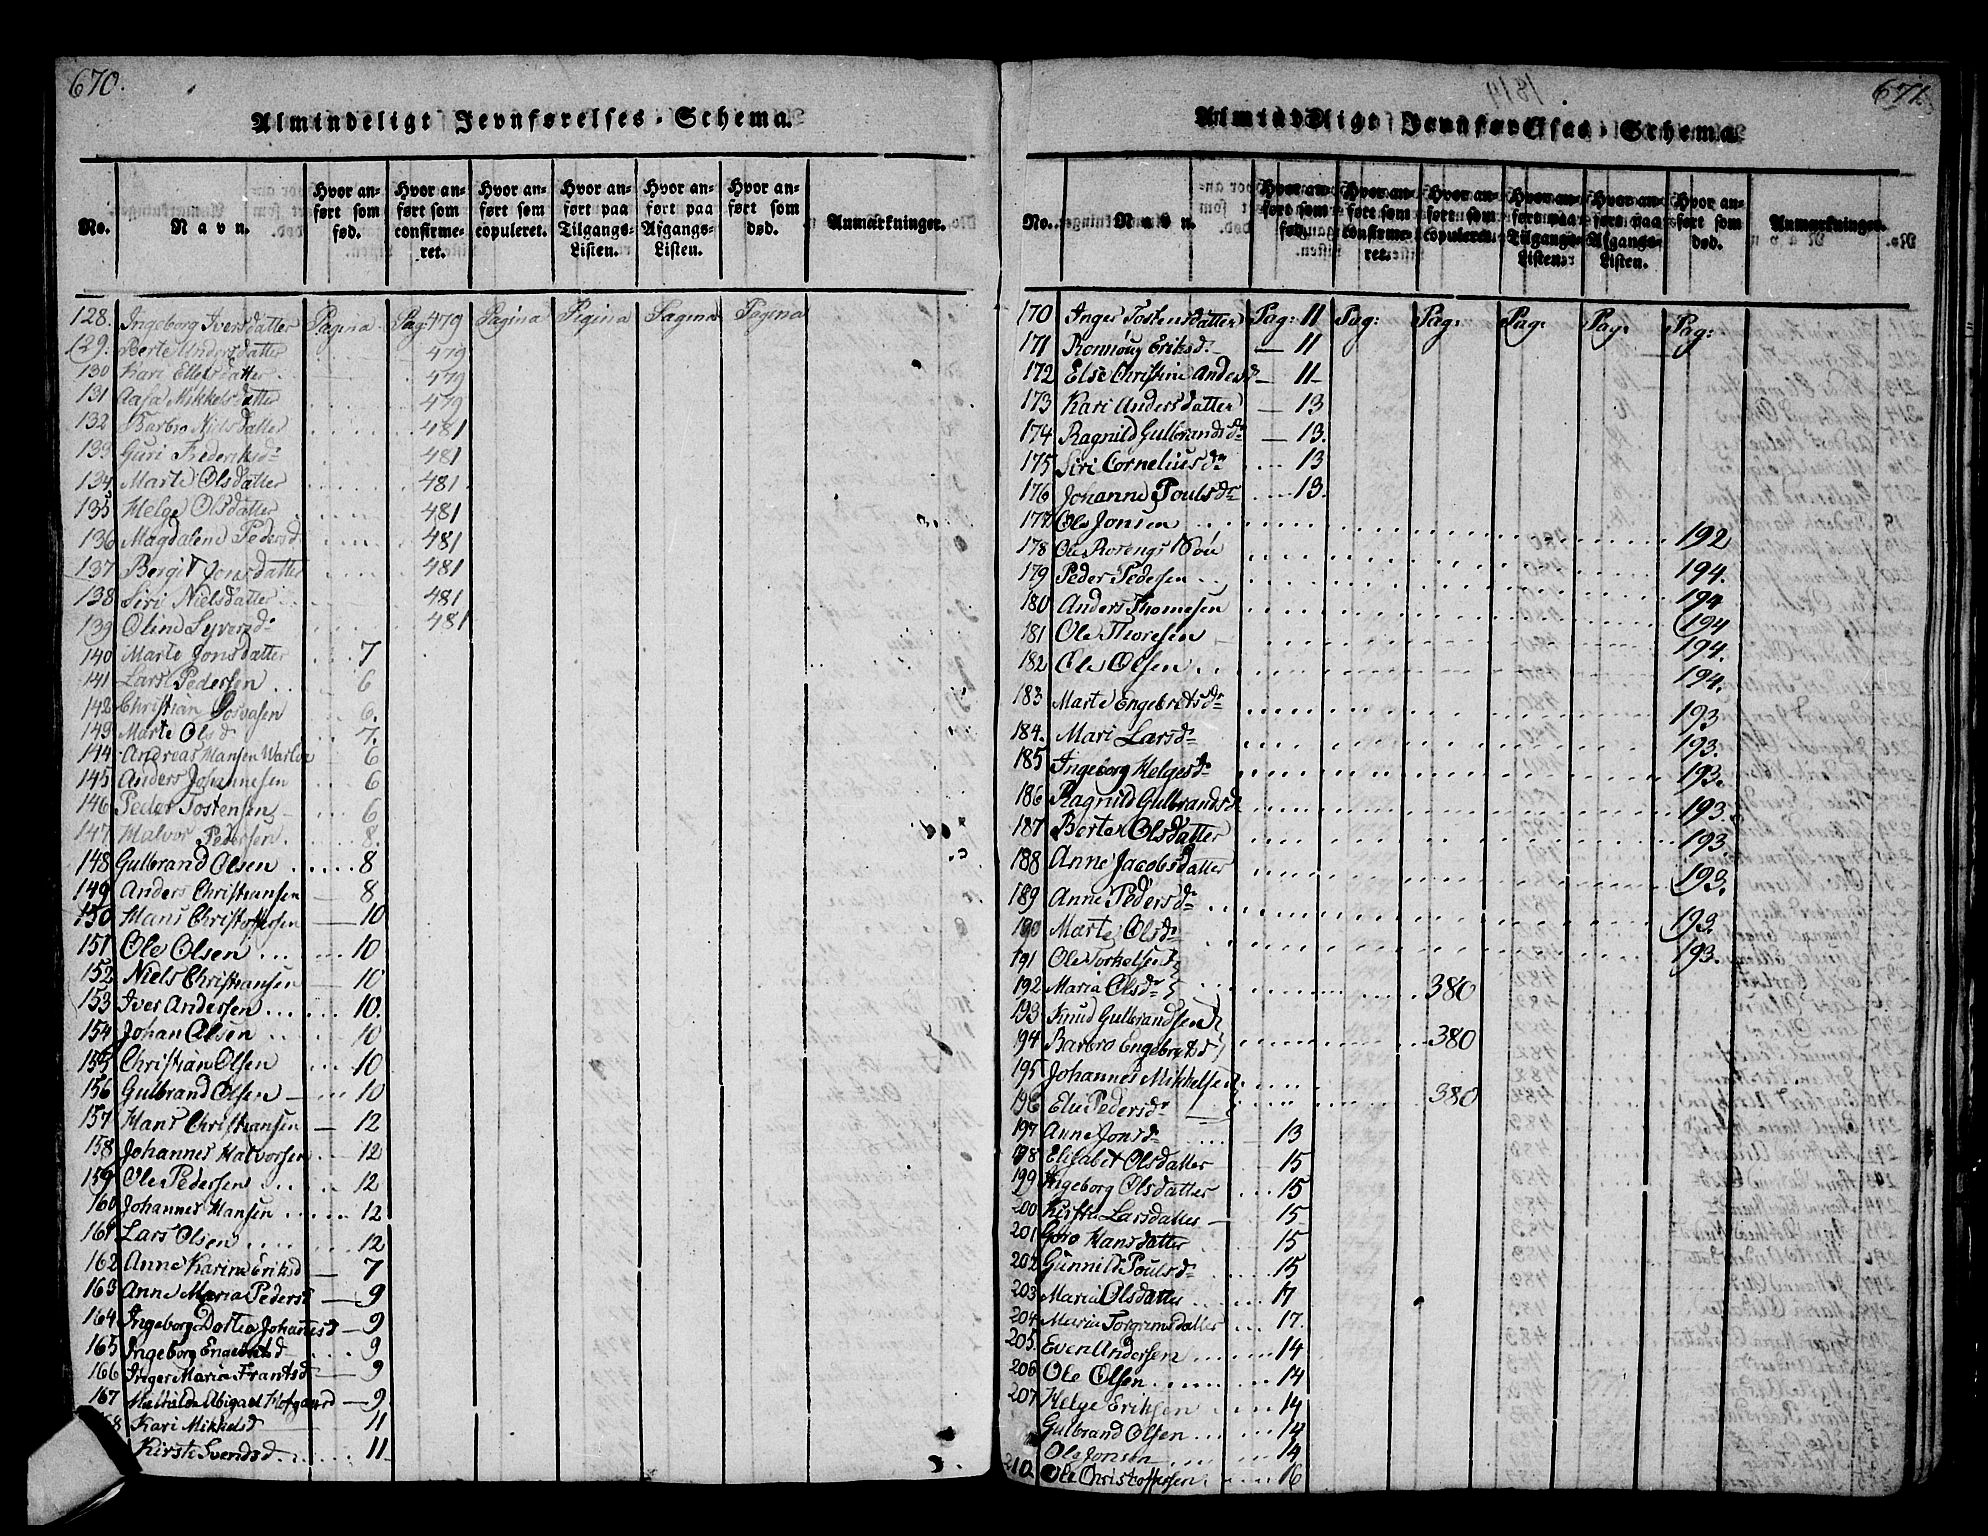 670.
Almindeligt Jevnførelses-Schema.
No.
Navn.
Hvor anført som fød.
Hvor anført som confirmeret.
Hvor anført som copuleret.
Hvor anført paa Tilgangs-Listen.
Hvor anført paa Afgangs-Listen.
Hvor anført som død.
Anmærkninger.
128. Ingeborg Iversdatter Pagina Pag: 479 Pagina Pagina Pagina Pagina
129. Berte Andersdatter 479
130 Kari Ellefsdatter 479
131 Aasa Mikkelsdatter 479
132 Barbro Nilsdatter 481
133 Guri Frederiksd: 481
134 Marte Olsdatter 481
135 Helge Olsdatter 481
136 Magdalene Pedersd 481
137 Bergit Jonsdatter 481
138 Siri Nielsdatter 481
139 Oline Syversd: 481
140 Marte Jonsdatter 7
141 Lars Pedersen 6
142 Christian 6.
143 Marte Olsd 7.
144 Andreas Hansen 6
145 Anders Johannesen 6
146 Peder Tostensen 6
147 Halvor Pedersen 8.
148 Gulbrand Olsen 8
149 Anders Christiansen 8
150 Hans Christophersen 10
151 Ole Olsen 10
152 Niels Christiansen 10
153 Iver Andersen 10.
154 Johan Olsen 10
155 Christian Olsen 10
156 Gulbrand Olsen 10
157 Hans Christiansen 12
158 Johannes Halvorsen 12
159 Ole Pedersen 12
160 Johannes Hansen 12
161 Lars Olsen 12
162 Anne Karine Eriksd 7
163 Anne Maria Pedersd 9
164 Ingeborg Dortea Johannesd 9
165 Ingeborg Engebretsd 9
166 Inger Maria Frantsd 9
167 Mathilde Abigael Hofgaard 9
68 Kari Mikkelsd 11
Kirste Svendsd 11
671.
1814
Almindeligt Jevnførelses-Schema.
No.
Navn.
Hvor anført som fød.
Hvor anført som confirmeret.
Hvor anført som copuleret.
Hvor anført paa Tilgangs-Listen.
Hvor anført paa Afgangs-Listen.
Hvor anført som død.
Anmærkninger.
170 Inger Tostensdatter Pag: 11 Pag: Pag: Pag: Pag: Pag:
171 Ronnoug Eriksd: 11
172 Else Christine Andersd 11
173 Kari Andersdatter 13
174 Ragnild Gulbrandsdr 13.
175 Siri Corneliusdr 13
176 Johanne Poulsdr 13.
177 Ole Jonsen 192
178 Ole Rosengs Søn 194.
179 Peder Pedersen 194
180 Anders Thomesen 194
181 Ole Thoresen 194.
182 Ole Olsen 194.
183 Marte Engebretsdr 193
184. Mari Larsdr 193.
185 Ingeborg Helgesdr 193.
186 Ragnild Gulbrandsdr 193.
187 Berte Olsdatter 193
188 Anne Jacobsdatter 193.
189 Anne Pedersdr 193.
190 Marte Olsdr 193.
191 Ole Torkelsen
192 Maria Olsdr 380
193 Knud Gulbrandsen
194 Barbro Engebretsd 380
195 Johannes Mikkelsen
196 Elie Pedersdr 380
197 Anne Jonsd: 13
198 Elisabet Olsdatter 15
199 Ingeborg Olsdatter 15
200 Kirstie Larsdatter 15
201 Goro Hansdatter 15
202 Gunnild Poulsd: 15
203 Maria Olsdatter 17
204 Maria Torgrimsdatter 17.
205. Even Andersen 14
206 Ole Olsen 14
207 Helge Eriksen 14
Gulbrand Olsen 14
Ole Jonsen 14
210 Ole Christophersen 16